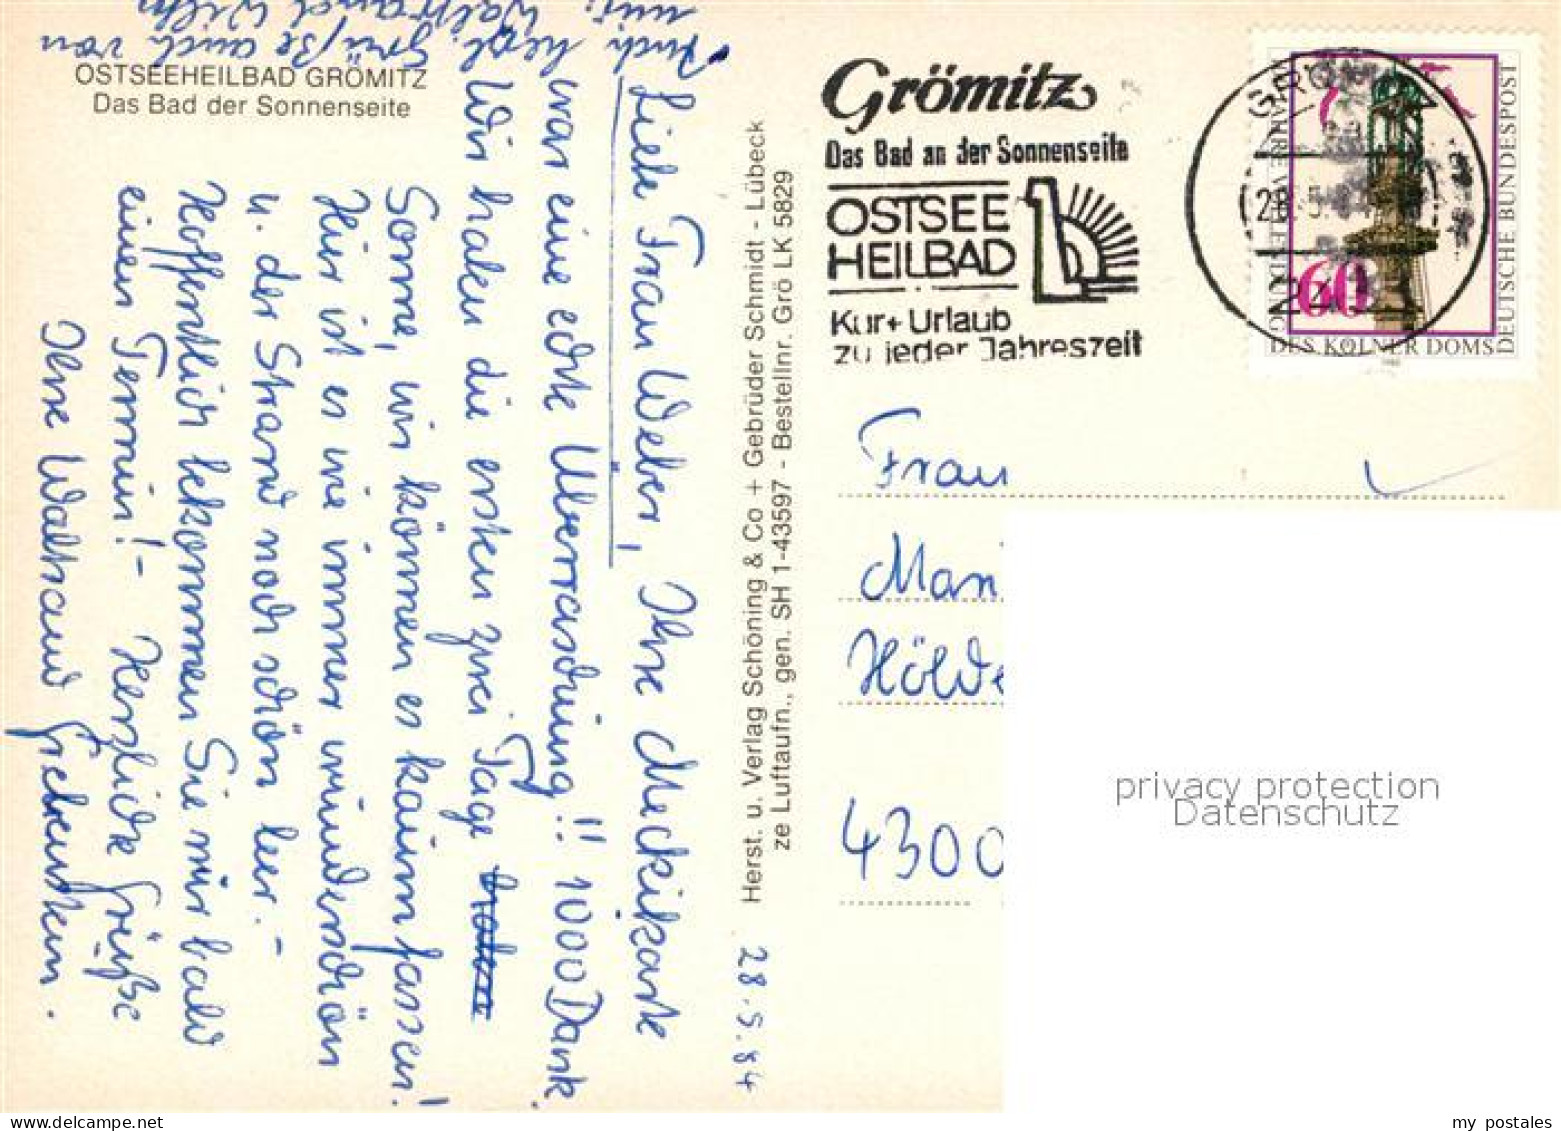 OSTSEEHEILBAD GRÖMITZ
Das Bad der Sonnenseite
28.5.84
Liebe Frau Weber, Ihre Meckikarte
war eine echte Überraschung!! 1000 Dank.
Wir haben die ersten zwei Tage
Sonne, wir können es kaum fassen!
Hier ist es wie immer wunderschön
u. der Strand noch schön leer.-
Hoffentlich bekommen Sie nur bald
einen Termin!- Herzliche Grüße
Ihre Waltraud
Auch herzl. Grüße auch von
Herst. u. Verlag Schöning & Co + Gebrüder Schmidt - Lübeck
ze Luftaufn., gen. SH 1-43597 - Bestellnr. Grö LK 5829
Grömitz
Das Bad an der Sonnenseite
OSTSEE
HEILBAD
Kur + Urlaub
zu jeder Jahreszeit
DEUTSCHE BUNDESPOST
DES KÖLNER DOMS
60
Frau
Man
Hölde
4300
privacy protection
Datenschutz
my postales
www.delcampe.net